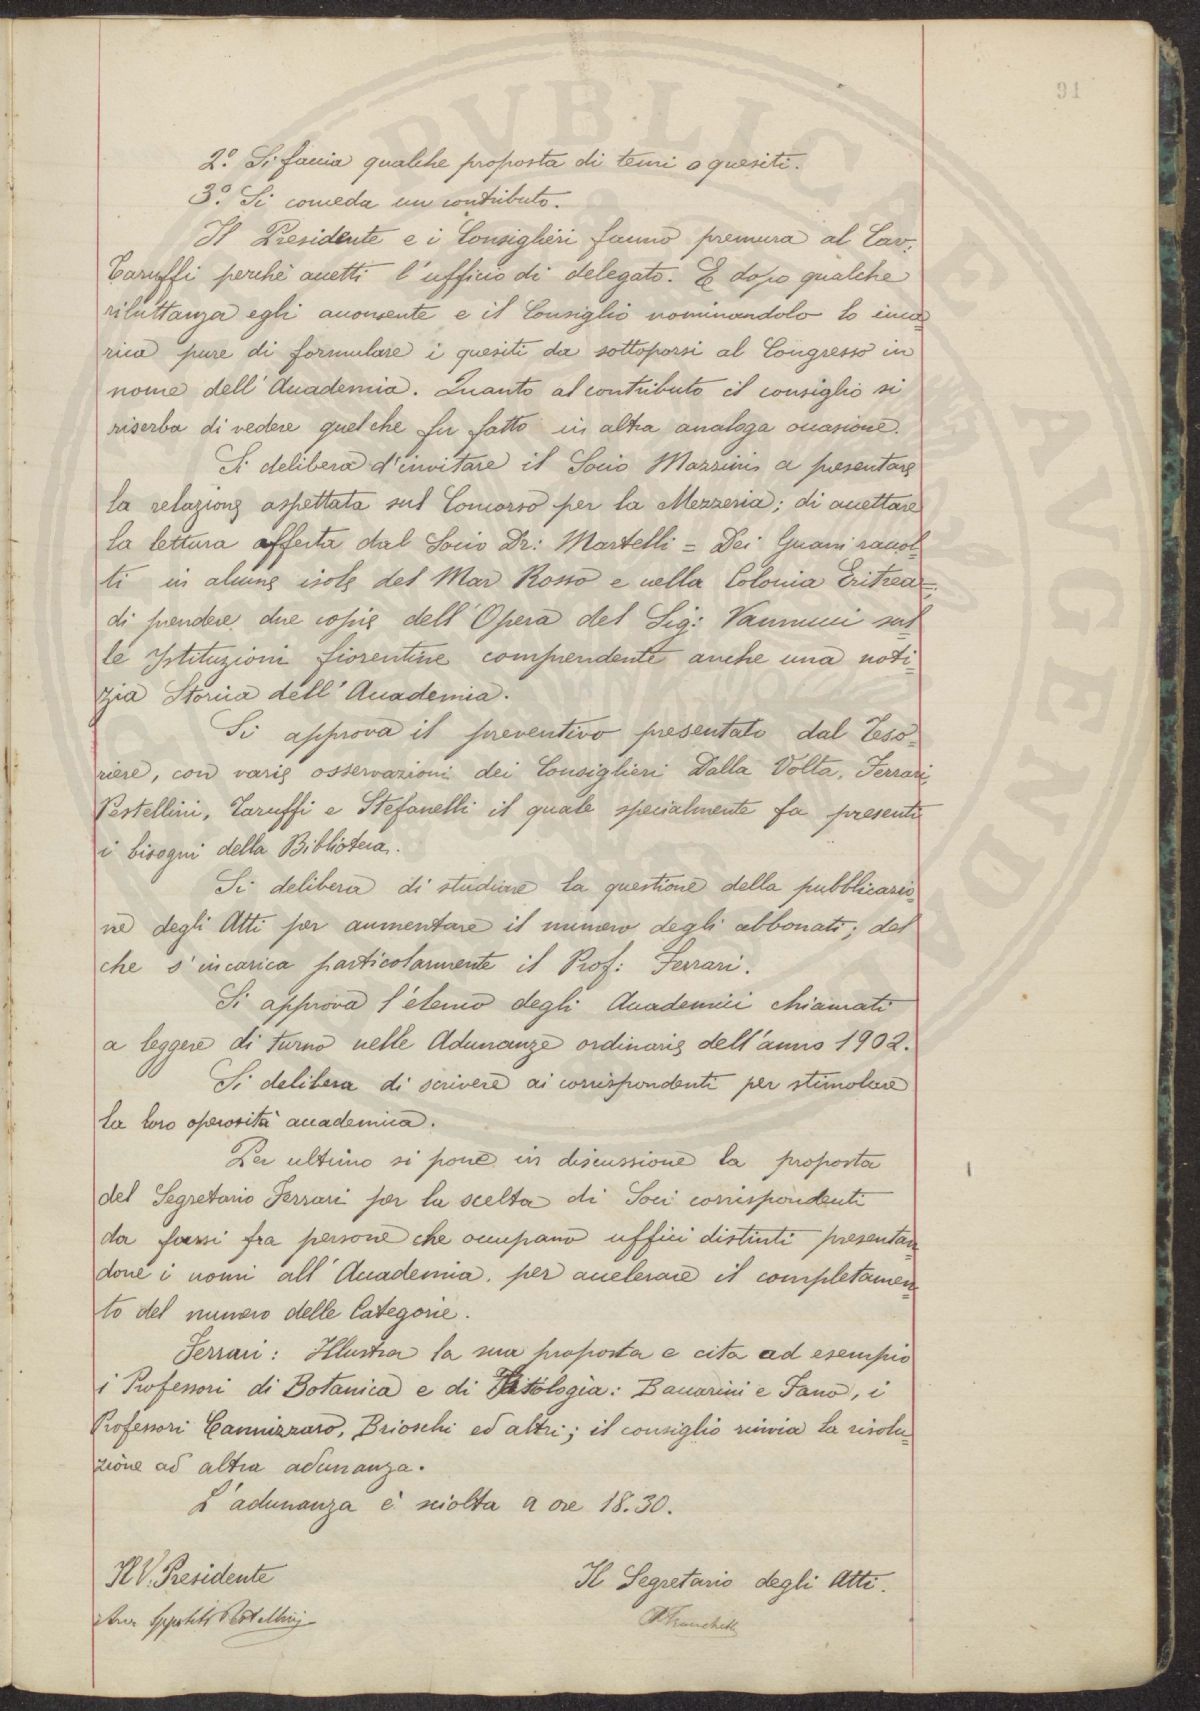 91
2.° Si faccia qualche proposta di temi o quesiti.
3.° Si conceda un contributo.
Il Presidente e i Consiglieri fanno premura al Cav.
Taruffi perchè accetti l'ufficio di delegato. E dopo qualche
riluttanza egli acconsente e il Consiglio nominandolo lo inca=
rica pure di formulare i quesiti da sottoporsi al Congresso in
nome dell'Accademia. Quanto al contributo il consiglio si
riserba di vedere quel che fu fatto in altra analoga occasione.
Si delibera d'invitare il Socio Mazzini a presentare
la relazione aspettata sul Concorso per la Mezzeria; di accettare
la lettura offerta dal Socio Dr: Martelli = Dei Guani raccol=
ti in alcune isole del Mar Rosso e nella Colonia Eritrea=;
di prendere due copie dell'Opera del Sig: Vannucci sul=
le Istituzioni fiorentine comprendente anche una noti=
zia Storica dell'Accademia.
Si approva il preventivo presentato dal Teso=
riere, con varie osservazioni dei Consiglieri Dalla Volta, Ferrari,
Pestellini, Taruffi e Stefanelli il quale specialmente fa presenti
i bisogni della Biblioteca.
Si delibera di studiare la questione della pubblicazio=
ne degli Atti per aumentare il numero degli abbonati; del
che s'incarica particolarmente il Prof: Ferrari.
Si approva l'elenco degli Accademici chiamati
a leggere di turno nelle Adunanze ordinarie dell'anno 1902.
Si delibera di scrivere ai corrispondenti per stimolare
la loro operosità accademica.
Per ultimo si pone in discussione la proposta
del Segretario Ferrari per la scelta di Soci corrispondenti
da farsi fra persone che occupano uffici distinti presentan=
done i nomi all'Accademia, per accelerare il completamen=
to del numero delle Categorie.
Ferrari: Illustra la sua proposta e cita ad esempio
i Professori di Botanica e di Fisiologia: Baccarini e Fano, i
Professori Cannizzaro, Brioschi ed altri; il consiglio rinvia la risolu=
zione ad altra adunanza.
L'adunanza è sciolta a ore 18.30.
Il V. Presidente
Il Segretario degli Atti.
Ippolito Pestellini
A Franchetti
PVBLICAE
AVGENDAE